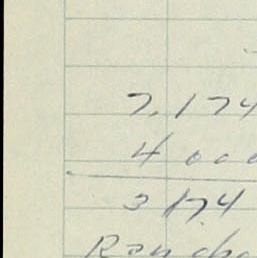 7,174
4000
3174
Rancho